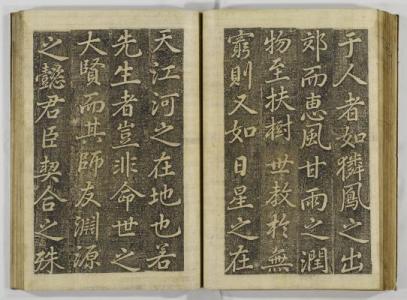 于人者如獜鳳之出
郊而恵風甘雨之潤
物至扶樹世教於無
窮則又如日星之在
天江河之在地也若
先生者豈非命世之
大賢而其師友淵源
之懿君臣契合之殊